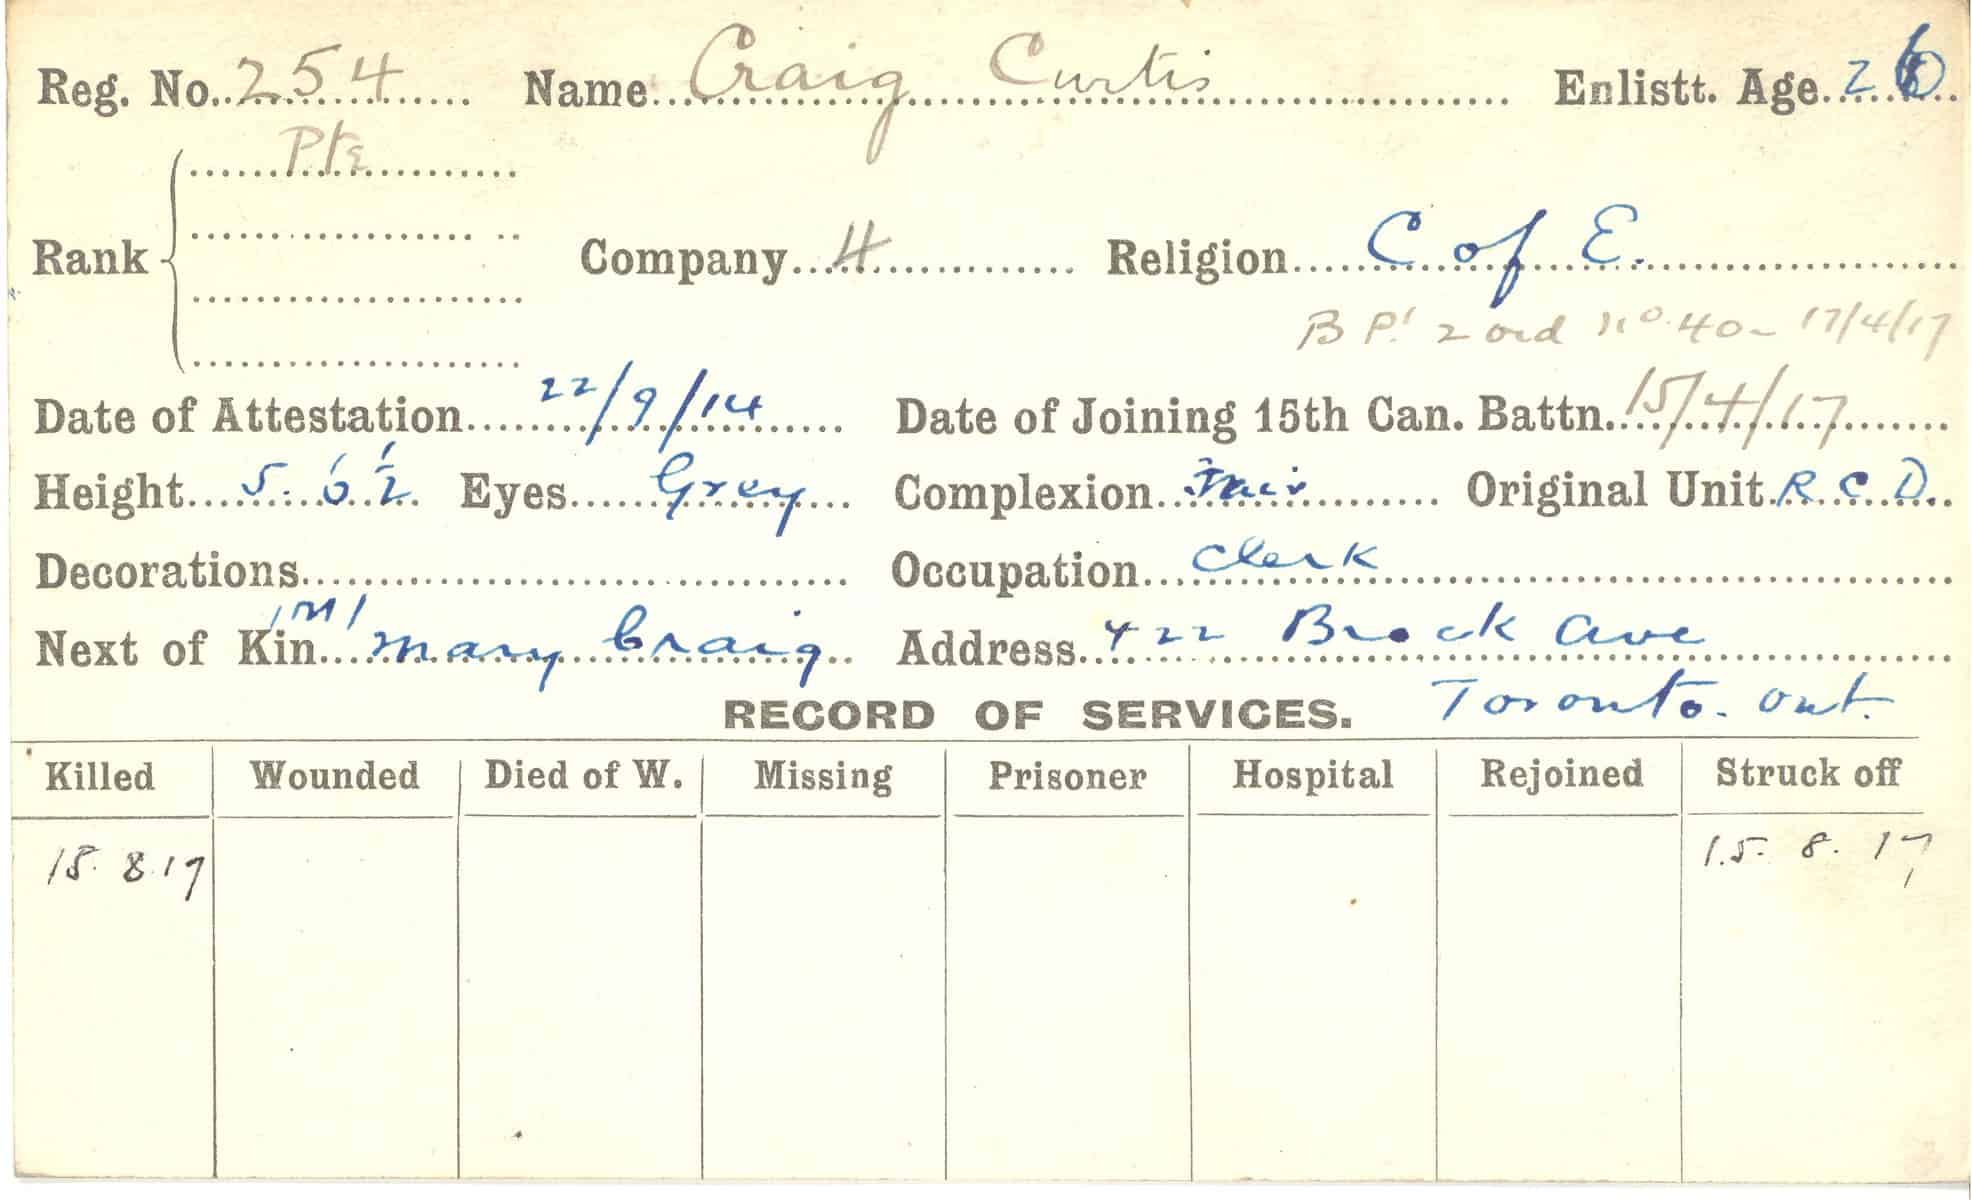 Reg. No. 254 Name Craig Curtis Enlistt. Age 26
Pte
Rank Company 4 Religion C of E.
B P! 2 ord no. 40 - 17/4/17
Date of Attestation 22/9/14 Date of Joining 15th Can. Battn. 15/4/17
Height 5. 6 1/2 Eyes Grey Complexion Fair Original Unit R C D.
Decorations Occupation Clerk
Next of Kin /M/ Mary Craig Address 422 Brock Ave
RECORD OF SERVICES. Toronto. Ont.
Killed Wounded Died of W. Missing Prisoner Hospital Rejoined Struck off
15. 8.17 15. 8. 17